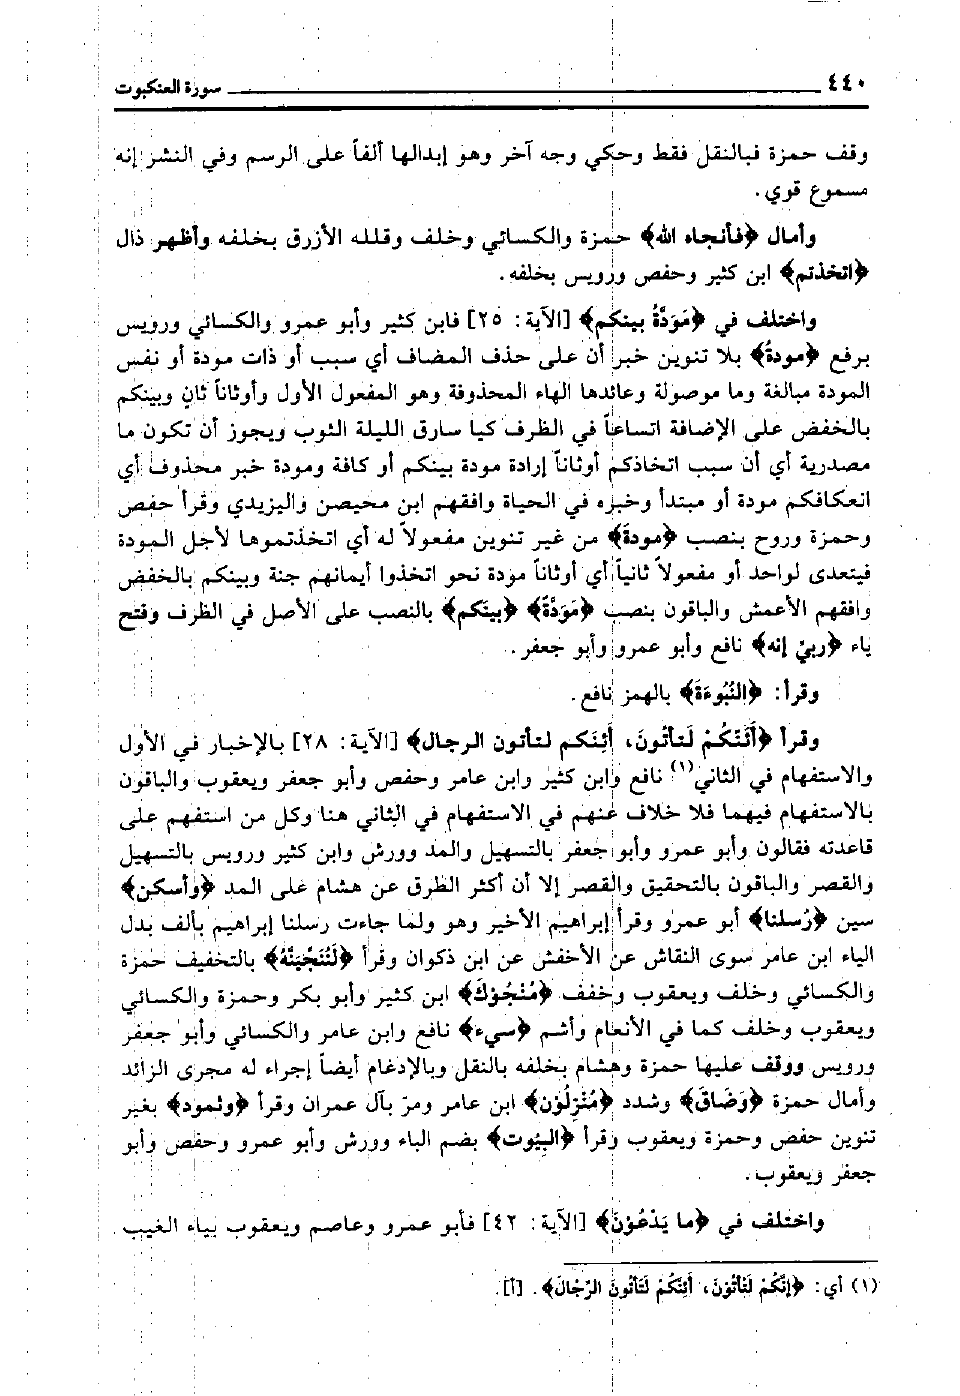 ٤٤٠ سورة العنكبوت
وقف حمزة فبالنقل فقط وحكي وجه آخر وهو إبدالها ألفاً على الرسم وفي النشر إنه
مسموع قوي.
وأمال ﴿فأنجاه الله﴾ حمزة والكسائي وخلف وقلله الأزرق بخلفه وأظهر ذال
﴿اتخذتم﴾ ابن كثير وحفص ورويس بخلفه.
واختلف في ﴿مَوَدَّةُ بينكم﴾ [الآية: ٢٥] فابن كثير وأبو عمرو والكسائي ورويس
برفع ﴿مودةُ﴾ بلا تنوين خبر أن على حذف المضاف أي سبب أو ذات مودة أو نفس
المودة مبالغة وما موصولة وعائدها الهاء المحذوفة وهو المفعول الأول وأوثاناً ثانٍ وبينكم
بالخفض على الإضافة اتساعاً في الظرف كيا سارق الليلة الثوب ويجوز أن تكون ما
مصدرية أي أن سبب اتخاذكم أوثاناً إرادة مودة بينكم أو كافة ومودة خبر محذوف أي
انعكافكم مودة أو مبتدأ وخبره في الحياة وافقهم ابن محيصن واليزيدي وقرأ حفص
وحمزة وروح بنصب ﴿مودةَ﴾ من غير تنوين مفعولاً له أي اتخذتموها لأجل المودة
فيتعدى لواحد أو مفعولاً ثانياً أي أوثاناً مودة نحو اتخذوا أيمانهم جنة وبينكم بالخفض
وافقهم الأعمش والباقون بنصب ﴿مَوَدَّةً﴾ ﴿بينَكم﴾ بالنصب على الأصل في الظرف وفتح
ياء ﴿ربيَ إنه﴾ نافع وأبو عمرو وأبو جعفر.
وقرأ: ﴿النُبُوءَةَ﴾ بالهمز نافع.
وقرأ ﴿أَئَنَّكُمْ لَتَأْتُونَ، أَئِنَكم لتأتون الرجال﴾ [الآية: ٢٨] بالإخبار في الأول
والاستفهام في الثاني(١) نافع وابن كثير وابن عامر وحفص وأبو جعفر ويعقوب والباقون
بالاستفهام فيهما فلا خلاف عنهم في الاستفهام في الثاني هنا وكل من استفهم على
قاعدته فقالون وأبو عمرو وأبو جعفر بالتسهيل والمد وورش وابن كثير ورويس بالتسهيل
والقصر والباقون بالتحقيق والقصر إلا أن أكثر الطرق عن هشام على المد ﴿وأسكن﴾
سين ﴿رُسلنا﴾ أبو عمرو وقرأ إبراهيم الأخير وهو ولما جاءت رسلنا إبراهيم بألف بدل
الياء ابن عامر سوى النقاش عن الأخفش عن ابن ذكوان وقرأ ﴿لَنُنَجِّيَنَّهُ﴾ بالتخفيف حمزة
والكسائي وخلف ويعقوب وخفف ﴿مُنَجُوكَ﴾ ابن كثير وأبو بكر وحمزة والكسائي
ويعقوب وخلف كما في الأنعام وأشم ﴿سيء﴾ نافع وابن عامر والكسائي وأبو جعفر
ورويس ووقف عليها حمزة وهشام بخلفه بالنقل وبالإدغام أيضاً إجراء له مجرى الزائد
وأمال حمزة ﴿وَضَاقَ﴾ وشدد ﴿مُنْزِلُوْن﴾ ابن عامر ومرّ بآل عمران وقرأ ﴿وثمود﴾ بغير
تنوين حفص وحمزة ويعقوب وقرأ ﴿البيُوت﴾ بضم الباء وورش وأبو عمرو وحفص وأبو
جعفر ويعقوب.
واختلف في ﴿ما يَدْعُوْنَ﴾ [الآية: ٤٢] فأبو عمرو وعاصم ويعقوب بياء الغيب
(١) أي: ﴿إِنَّكُمْ لَتَأْتُوْنَ، أَئِنَّكُمْ لَتَأْتُونَ الرِّجَالَ﴾. [أ].